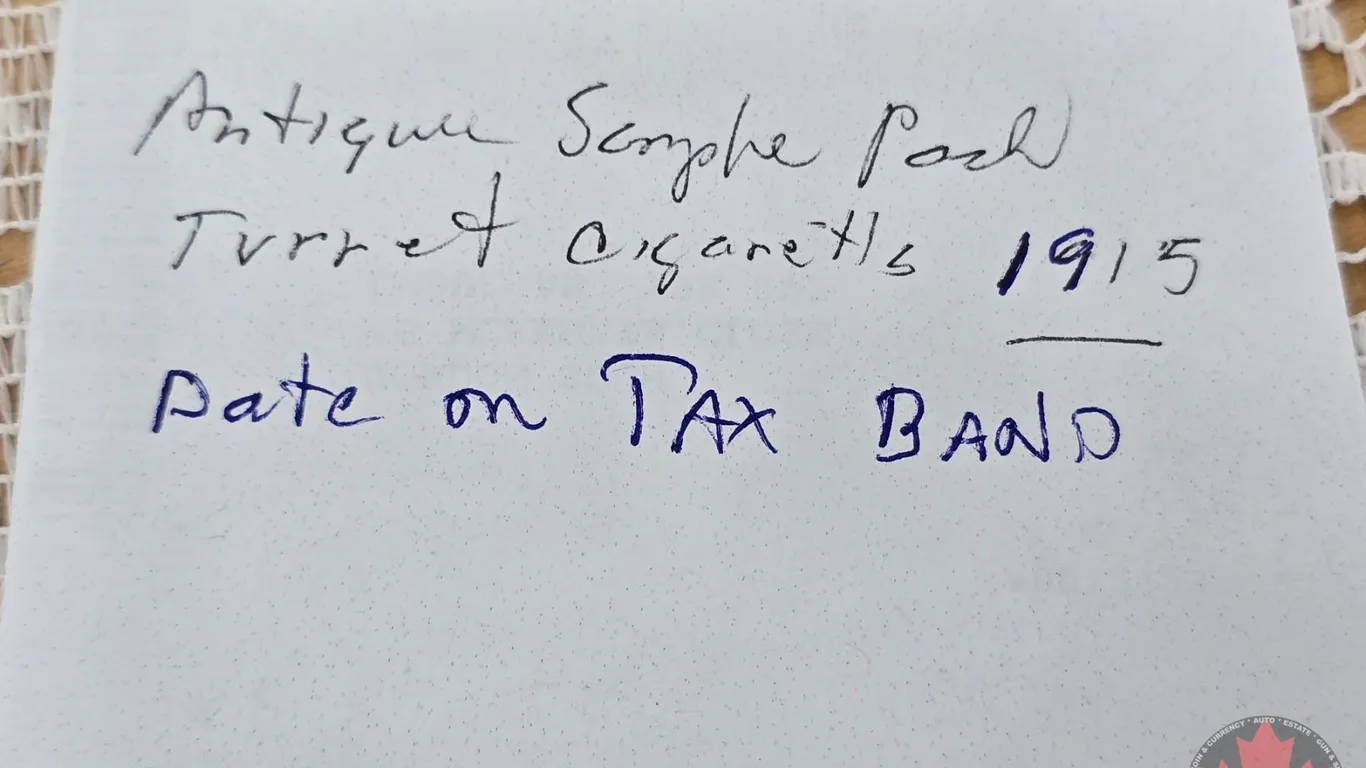 Antique Sample Pack
Turret Cigaretts 1915
Date on TAX BAND
COIN & CURRENCY • AUTO • ESTATE • GUN &